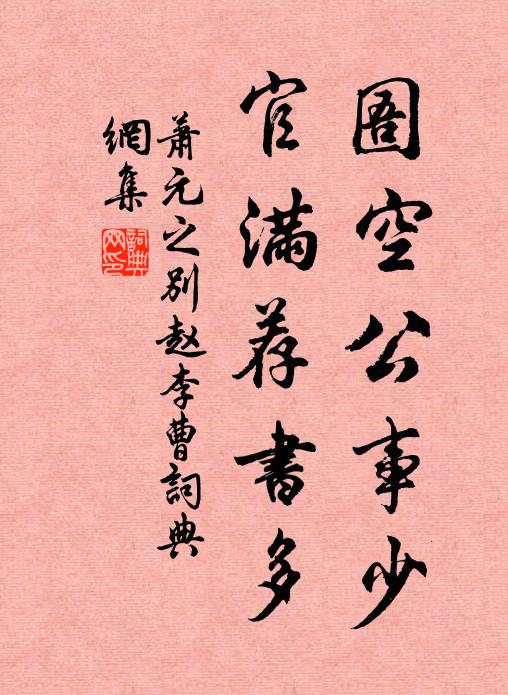 圄空公事少
官满荐書多
萧元之别赵李曹詞典
網集
詞典
网印